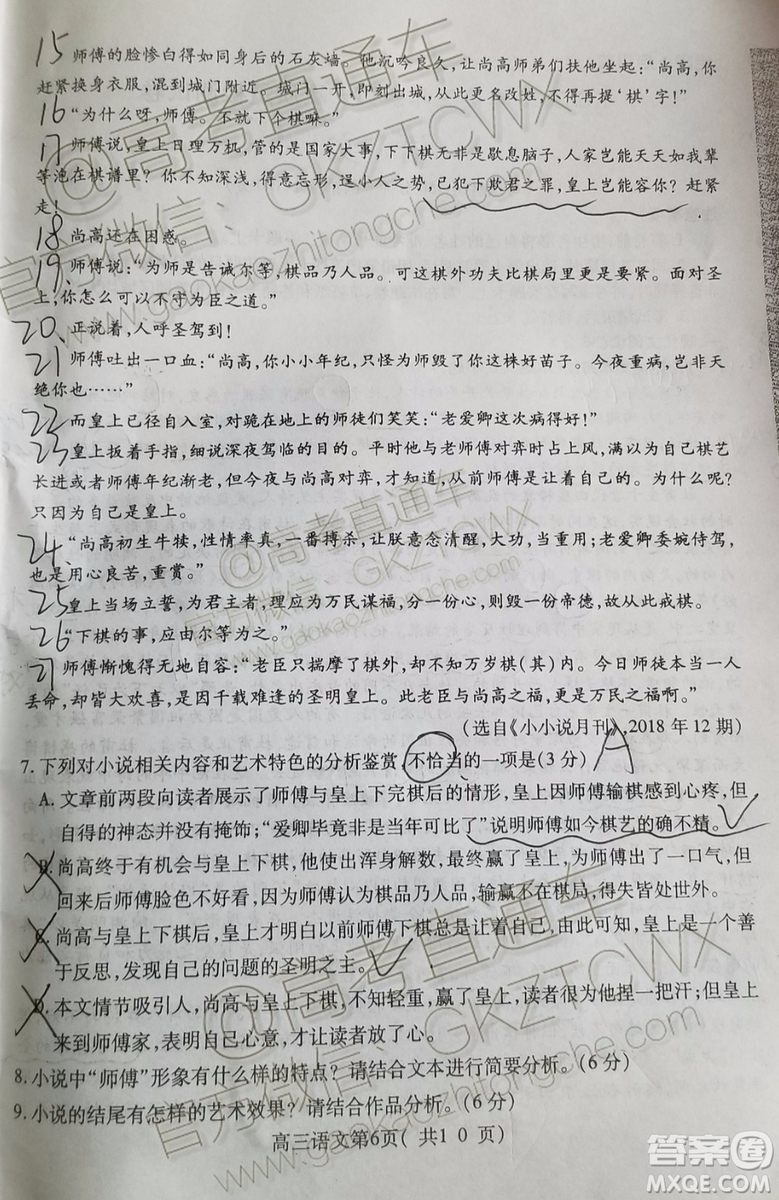 15 师傅的脸惨白得如同身后的石灰墙。他沉吟良久，让尚高师弟们扶他坐起：“尚高，你
赶紧换身衣服，混到城门附近。城门一开，即刻出城，从此更名改姓，不得再提‘棋’字！”
16 “为什么呀，师傅。不就下个棋嘛。”
17 师傅说，皇上日理万机，管的是国家大事，下下棋无非是歇息脑子，人家岂能天天如我辈
等泡在棋谱里？你不知深浅，得意忘形，逞小人之势，已犯下欺君之罪，皇上岂能容你？赶紧
走！
18 尚高还在困惑。
19、师傅说：“为师是告诫尔等，棋品乃人品。可这棋外功夫比棋局里更是要紧。面对圣
上，你怎么可以不守为臣之道。”
20、正说着，人呼圣驾到！
21 师傅吐出一口血：“尚高，你小小年纪，只怪为师毁了你这株好苗子。今夜重病，岂非天
绝你也……”
22 而皇上已径自入室，对跪在地上的师徒们笑笑：“老爱卿这次病得好！”
23 皇上扳着手指，细说深夜驾临的目的。平时他与老师傅对弈时占上风，满以为自己棋艺
长进或者师傅年纪渐老，但今夜与尚高对弈，才知道，从前师傅是让着自己的。为什么呢？
只因为自己是皇上。
24、“尚高初生牛犊，性情率真，一番搏杀，让朕意念清醒，大功，当重用；老爱卿委婉侍驾，
也是用心良苦，重赏。”
25 皇上当场立誓，为君主者，理应为万民谋福，分一份心，则毁一份帝德，故从此戒棋。
26 “下棋的事，应由尔等为之。”
27 师傅惭愧得无地自容：“老臣只揣摩了棋外，却不知万岁棋(其)内。今日师徒未成一人
丢命，却皆大欢喜，是因千载难逢的圣明皇上。此老臣与尚高之福，更是万民之福啊。”
(选自《小小说月刊》，2018年12期)
7. 下列对小说相关内容和艺术特色的分析鉴赏，不恰当的一项是(3分) A
A. 文章前两段向读者展示了师傅与皇上下完棋后的情形，皇上因师傅输棋感到心疼，但
自得的神态并没有掩饰；“爱卿毕竟非是当年可比了”说明师傅如今棋艺的确不精。
B. 尚高终于有机会与皇上下棋，他使出浑身解数，最终赢了皇上，为师傅出了一口气，但
回来后师傅脸色不好看，因为师傅认为棋品乃人品，输赢不在棋局，得失皆处世外。
C. 尚高与皇上下棋后，皇上才明白以前师傅总是让着自己，由此可知，皇上是一个善
于反思，发现自己的问题的圣明之主。
D. 本文情节吸引人，尚高与皇上下棋，不知轻重，赢了皇上，读者很为他捏一把汗；但皇上
来到师傅家，表明自己心意，才让读者放了心。
8. 小说中“师傅”形象有什么样的特点？请结合文本进行简要分析。(6分)
9. 小说的结尾有怎样的艺术效果？请结合作品分析。(6分)
高三语文第6页( 共1 0 页)
@高考直通车
官方微信：GKZTCWX
www.gaokaozhitongche.com
@高考直通车
官方微信：GKZTCWX
www.gaokaozhitongche.com
@高考直通车
官方微信：GKZTCWX
www.gaokaozhitongche.com
答案圈
MXQE.COM